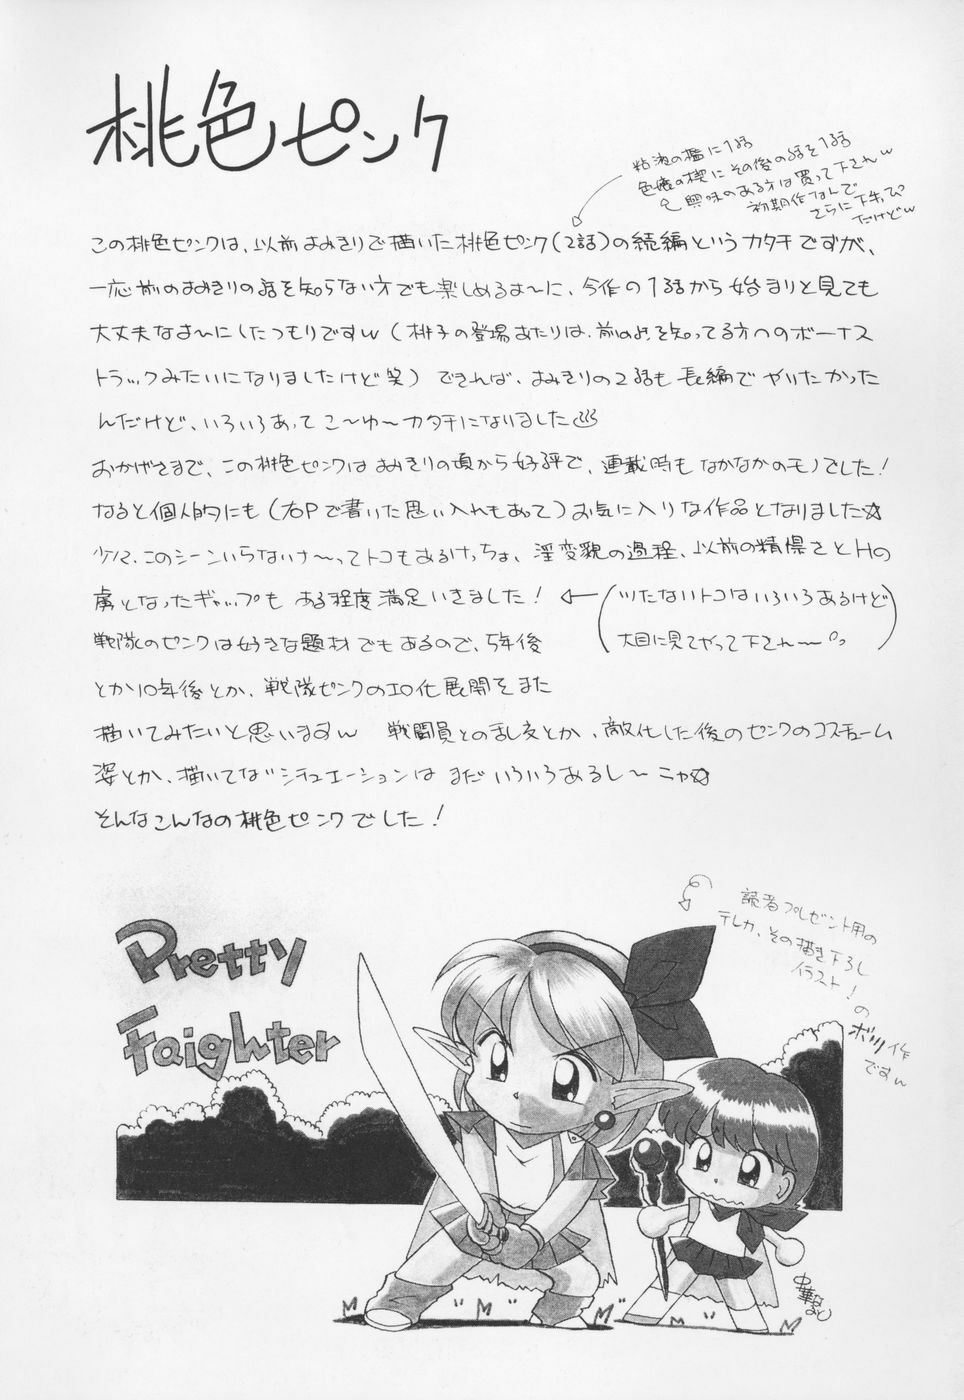 桃色ピンク
粘液の檻に1話
色癒の楔にその後の話を1話
興味のある方は買って下されw
初期作なんで
さらに下手っぴ
だけどw
この桃色ピンクは、以前よみきりで描いた桃色ピンク(2話)の続編というカタチですが、
一応前のよみきりの話を知らない方でも楽しめるよ〜に、今作の1話から始まりと見ても
大丈夫なよ〜にしたつもりですw(桃子の登場あたりは、前のよみを知ってる方へのボーナス
トラックみたいになりましたけど笑)できれば、よみきりの2話も長編でやりたかった
んだけど、いろいろあってこ〜ゆ〜カタチになりました
おかげさまで、この桃色ピンクはよみきりの頃から好評で、連載時もなかなかのモノでした!
なると個人的にも(右Pで書いた思い入れもあって)お気に入りな作品となりました☆
少々、このシーンいらないけ〜ってトコもあるけっちょ、淫変貌の過程、以前の精悍さとHの
虜となったギャップもある程度満足いきました!
(ツたないトコはいろいろあるけど
大目に見てやって下され〜)
戦隊のピンクは好きな題材でもあるので、5年後
とか10年後とか、戦隊ピンクのエロ化展開をまた
描いてみたいと思いますw 戦闘員との乱交とか、敵化した後のピンクのコスチューム
姿とか、描いてないシチュエーションはまだいろいろあるし〜ニャ☆
そんなこんなの桃色ピンクでした!
読者プレゼント用の
テレカ、その描き下ろし
イラスト!
の
ボツ作
ですw
Pretty
Faighter